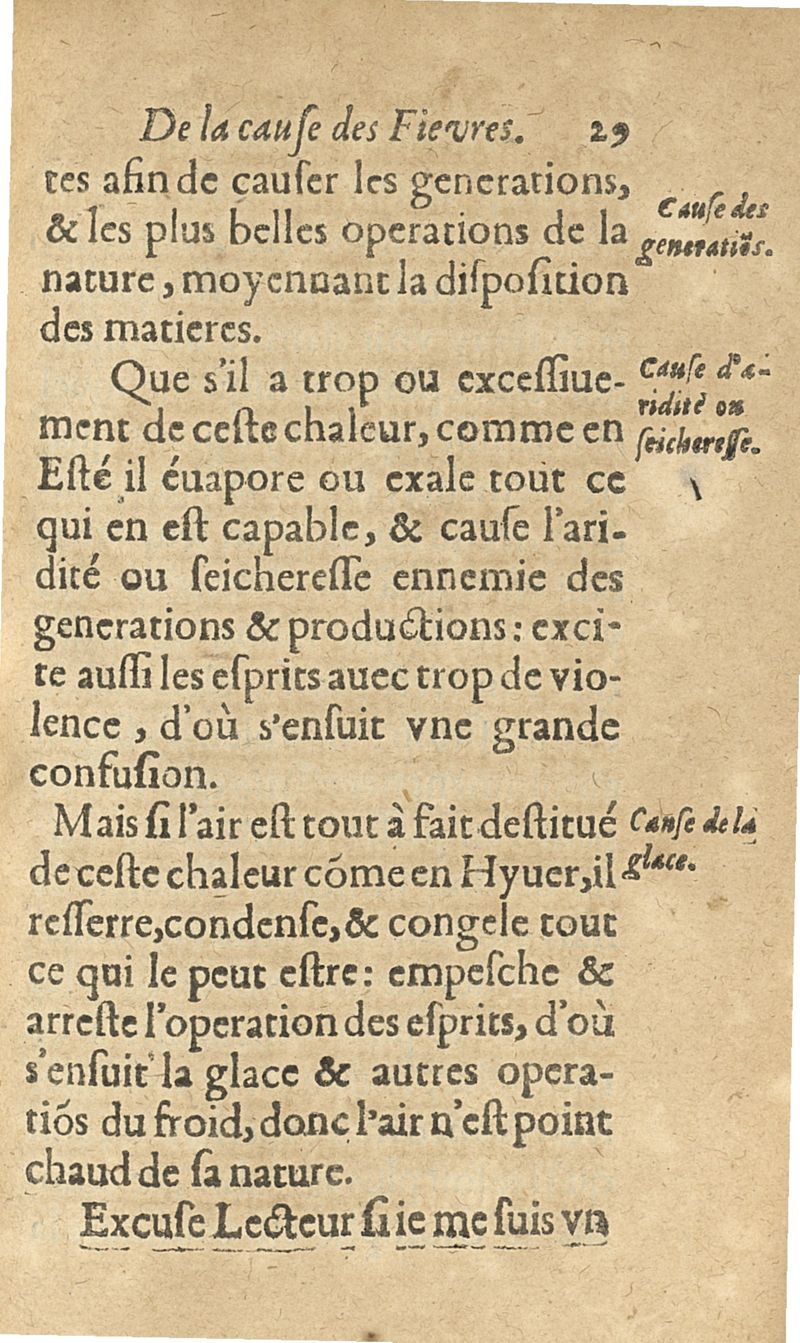 De la cauſe des Fievres. 29
tes afin de cauſer les generations,
& les plus belles operations de la
nature, moyennant la diſpoſition
des matieres.
Cauſe des
generatiõs.
Que s'il a trop ou exceſſiue-
ment de ceſte chaleur, comme en
Eſté il éuapore ou exale tout ce
qui en eſt capable, & cauſe l'ari-
dité ou ſeichereſſe ennemie des
generations & productions: exci-
te auſſi les eſprits auec trop de vio-
lence, d'où s'enſuit vne grande
confuſion.
Cauſe d'a-
ridité ou
ſeichereſſe.
Mais ſi l'air eſt tout à fait deſtitué
de ceſte chaleur cõme en Hyuer, il
reſſerre, condenſe, & congele tout
ce qui le peut eſtre: empeſche &
arreſte l'operation des eſprits, d'où
s'enſuit la glace & autres opera-
tiõs du froid, donc l'air n'eſt point
chaud de ſa nature.
Cauſe de la
glace.
Excuſe Lecteur ſi ie me ſuis vn